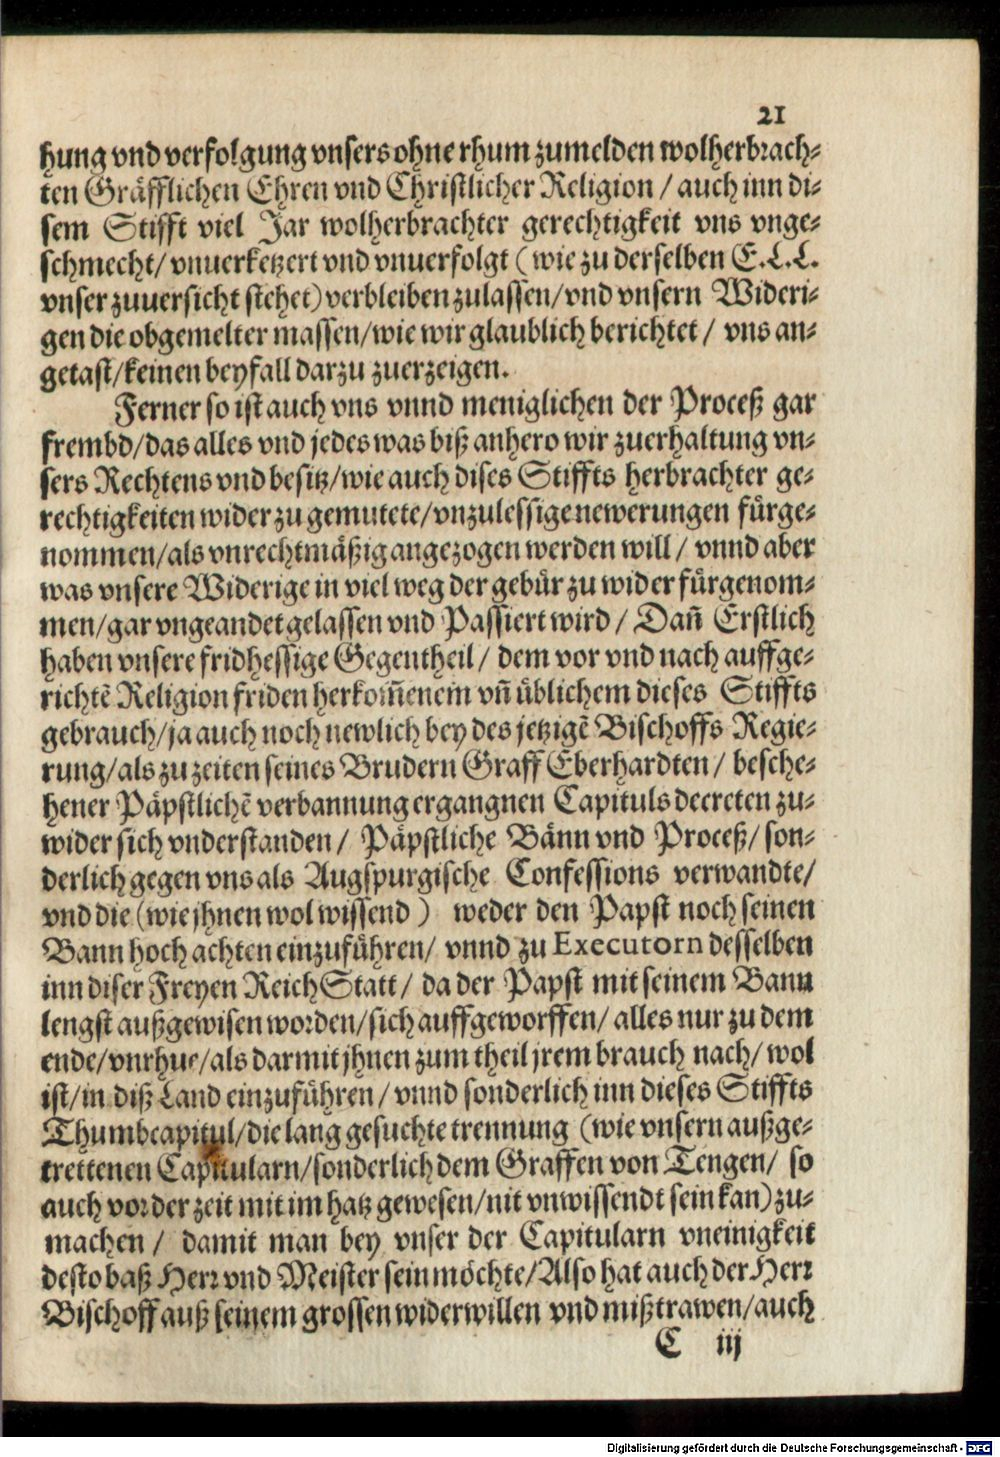 21
hung vnd verfolgung vnsers ohne rhum zumelden wolherbrach-
ten Gräfflichen Ehren vnd Christlicher Religion / auch inn di-
sem Stifft viel Jar wolherbrachter gerechtigkeit vns vnge-
schmecht/ vnuerketzert vnd vnuerfolgt (wie zu derselben E.L.L.
vnser zuuersicht stehet) verbleiben zulassen/vnd vnsern Wideri-
gen die obgemelter massen/wie wir glaublich berichtet / vns an-
getast/keinen beyfall darzu zuerzeigen.
Ferner so ist auch vns vnnd meniglichen der Proceß gar
frembd/das alles vnd jedes was biß anhero wir zuerhaltung vn-
sers Rechtens vnd besitz/wie auch dises Stiffts herbrachter ge-
rechtigkeiten wider zu gemutete/vnzulessige newerungen fürge-
nommen/als vnrechtmäßig angezogen werden will / vnnd aber
was vnsere Widerige in viel weg der gebür zu wider fürgenom-
men/gar vngeandet gelassen vnd Passiert wird / Dañ Erstlich
haben vnsere fridhessige Gegentheil / dem vor vnd nach auffge-
richtē Religion friden herkom̃enem vñ üblichem dieses Stiffts
gebrauch/ja auch noch newlich bey des jetzigē Bischoffs Regie-
rung/als zu zeiten seines Brudern Graff Eberhardten / besche-
hener Päpstlichē verbannung ergangnen Capituls decreten zu-
wider sich vnderstanden / Päpstliche Bänn vnd Proceß/ son-
derlich gegen vns als Augspurgische Confessions verwandte/
vnd die (wie jhnen wol wissend ) weder den Papst noch seinen
Bann hoch achten einzuführen/ vnnd zu Executorn desselben
inn diser Freyen ReichStatt / da der Papst mit seinem Bann
lengst außgewisen worden/sich auffgeworffen/ alles nur zu dem
ende/vnrhue/als darmit jhnen zum theil jrem brauch nach/ wol
ist/in diß Land einzuführen / vnnd sonderlich inn dieses Stiffts
Thumbcapitul/die lang gesuchte trennung (wie vnsern außge-
trettenen Capitularn/sonderlich dem Graffen von Tengen/ so
auch vor der zeit mit im hatz gewesen/nit vnwissendt sein kan) zu-
machen / damit man bey vnser der Capitularn vneinigkeit
desto baß Herr vnd Meister sein möchte/Also hat auch der Herr
Bischoff auß seinem grossen widerwillen vnd mißtrawen/auch
C iij
Digitalisierung gefördert durch die Deutsche Forschungsgemeinschaft - DFG